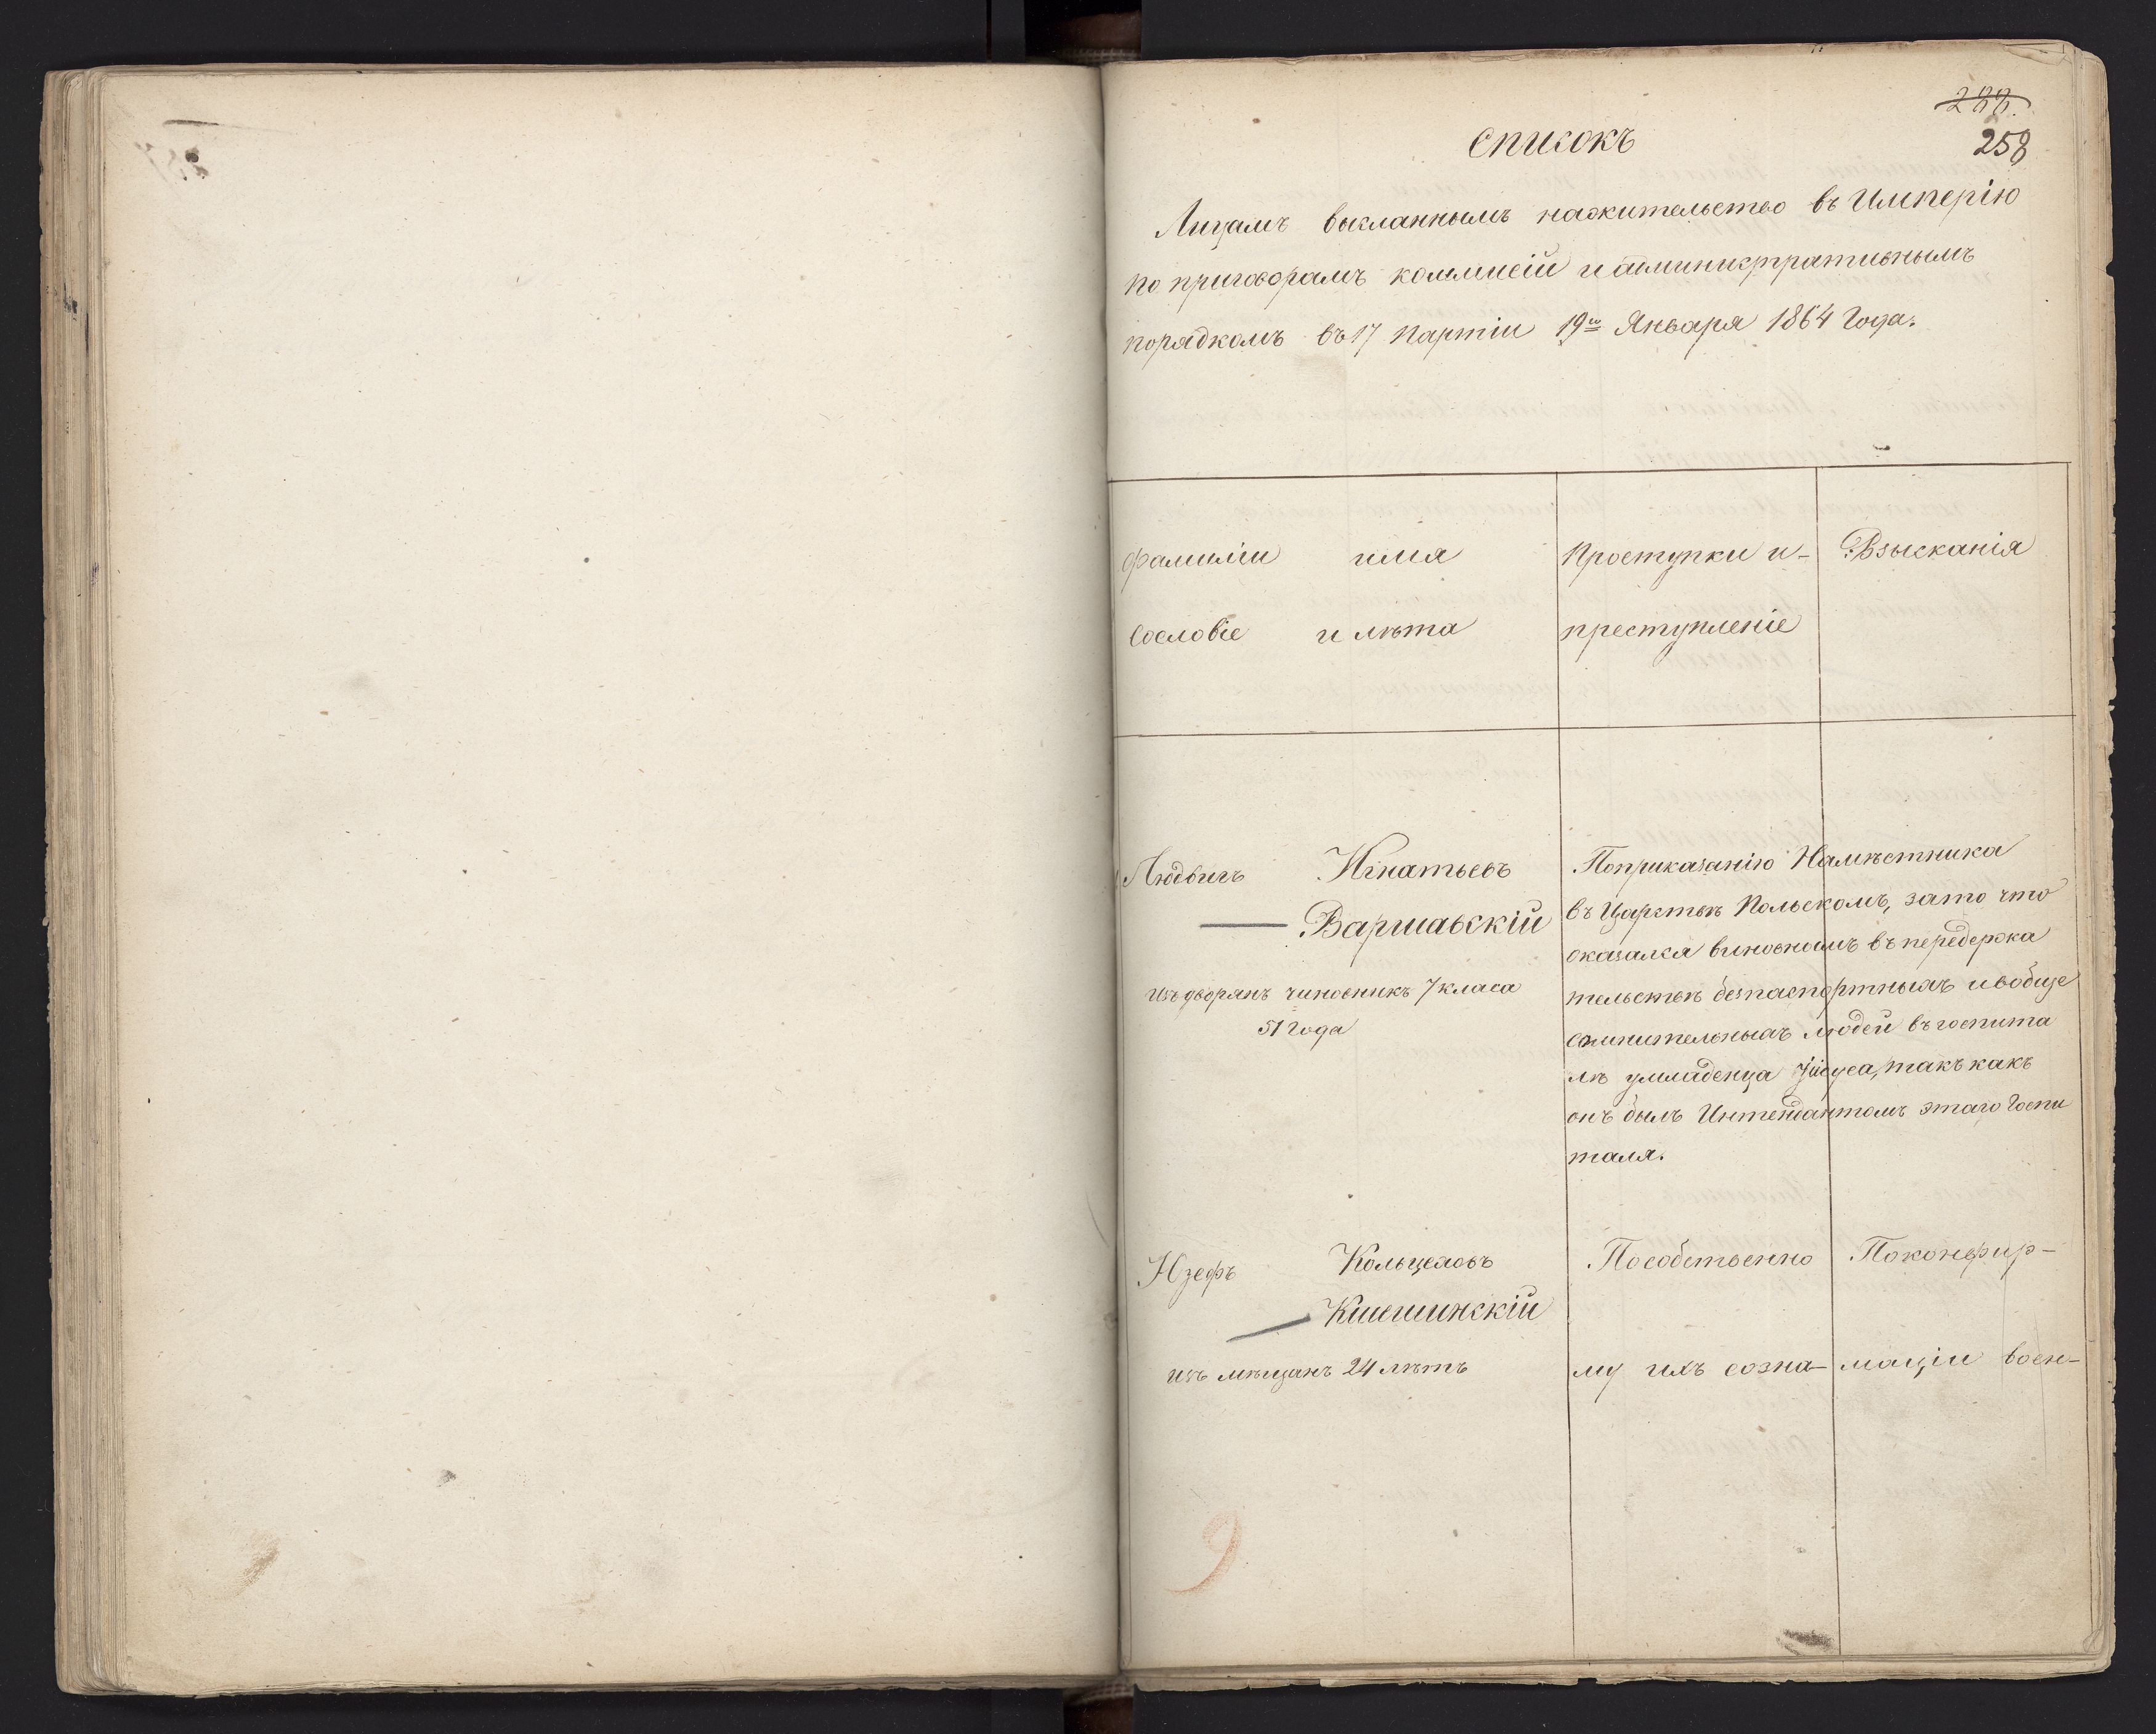 288.
258
Списокъ
Лицамъ высланнымъ нажительство въ Имперію
по приговорамъ коммисіи и административнымъ
порядкомъ въ 17 партіи 19го Января 1864 Года.
Фамиліи имя
Сословіе и лѣта
Проступки и-
преступленіе
Взысканія
Людвигъ Игнатьевъ
Варшавскій
изъ дворянъ чиновникъ 7 класа
51 года
Поприказанію Намѣстника
въ Царствѣ Польскомъ, зато что
оказался виновнымъ въ передержа
тельствѣ безпаспортныхъ ивобще
сомнительныхъ людей въ госпита
лѣ умладенца Іисуса, такъ какъ
онъ былъ Интендантомъ этаго Госпи
таля.
Юзефъ
Кишшинскій
изъ мѣщанъ 24 лѣтъ
Пособственно
му ихъ созна-
Поконфир-
маціи воен-